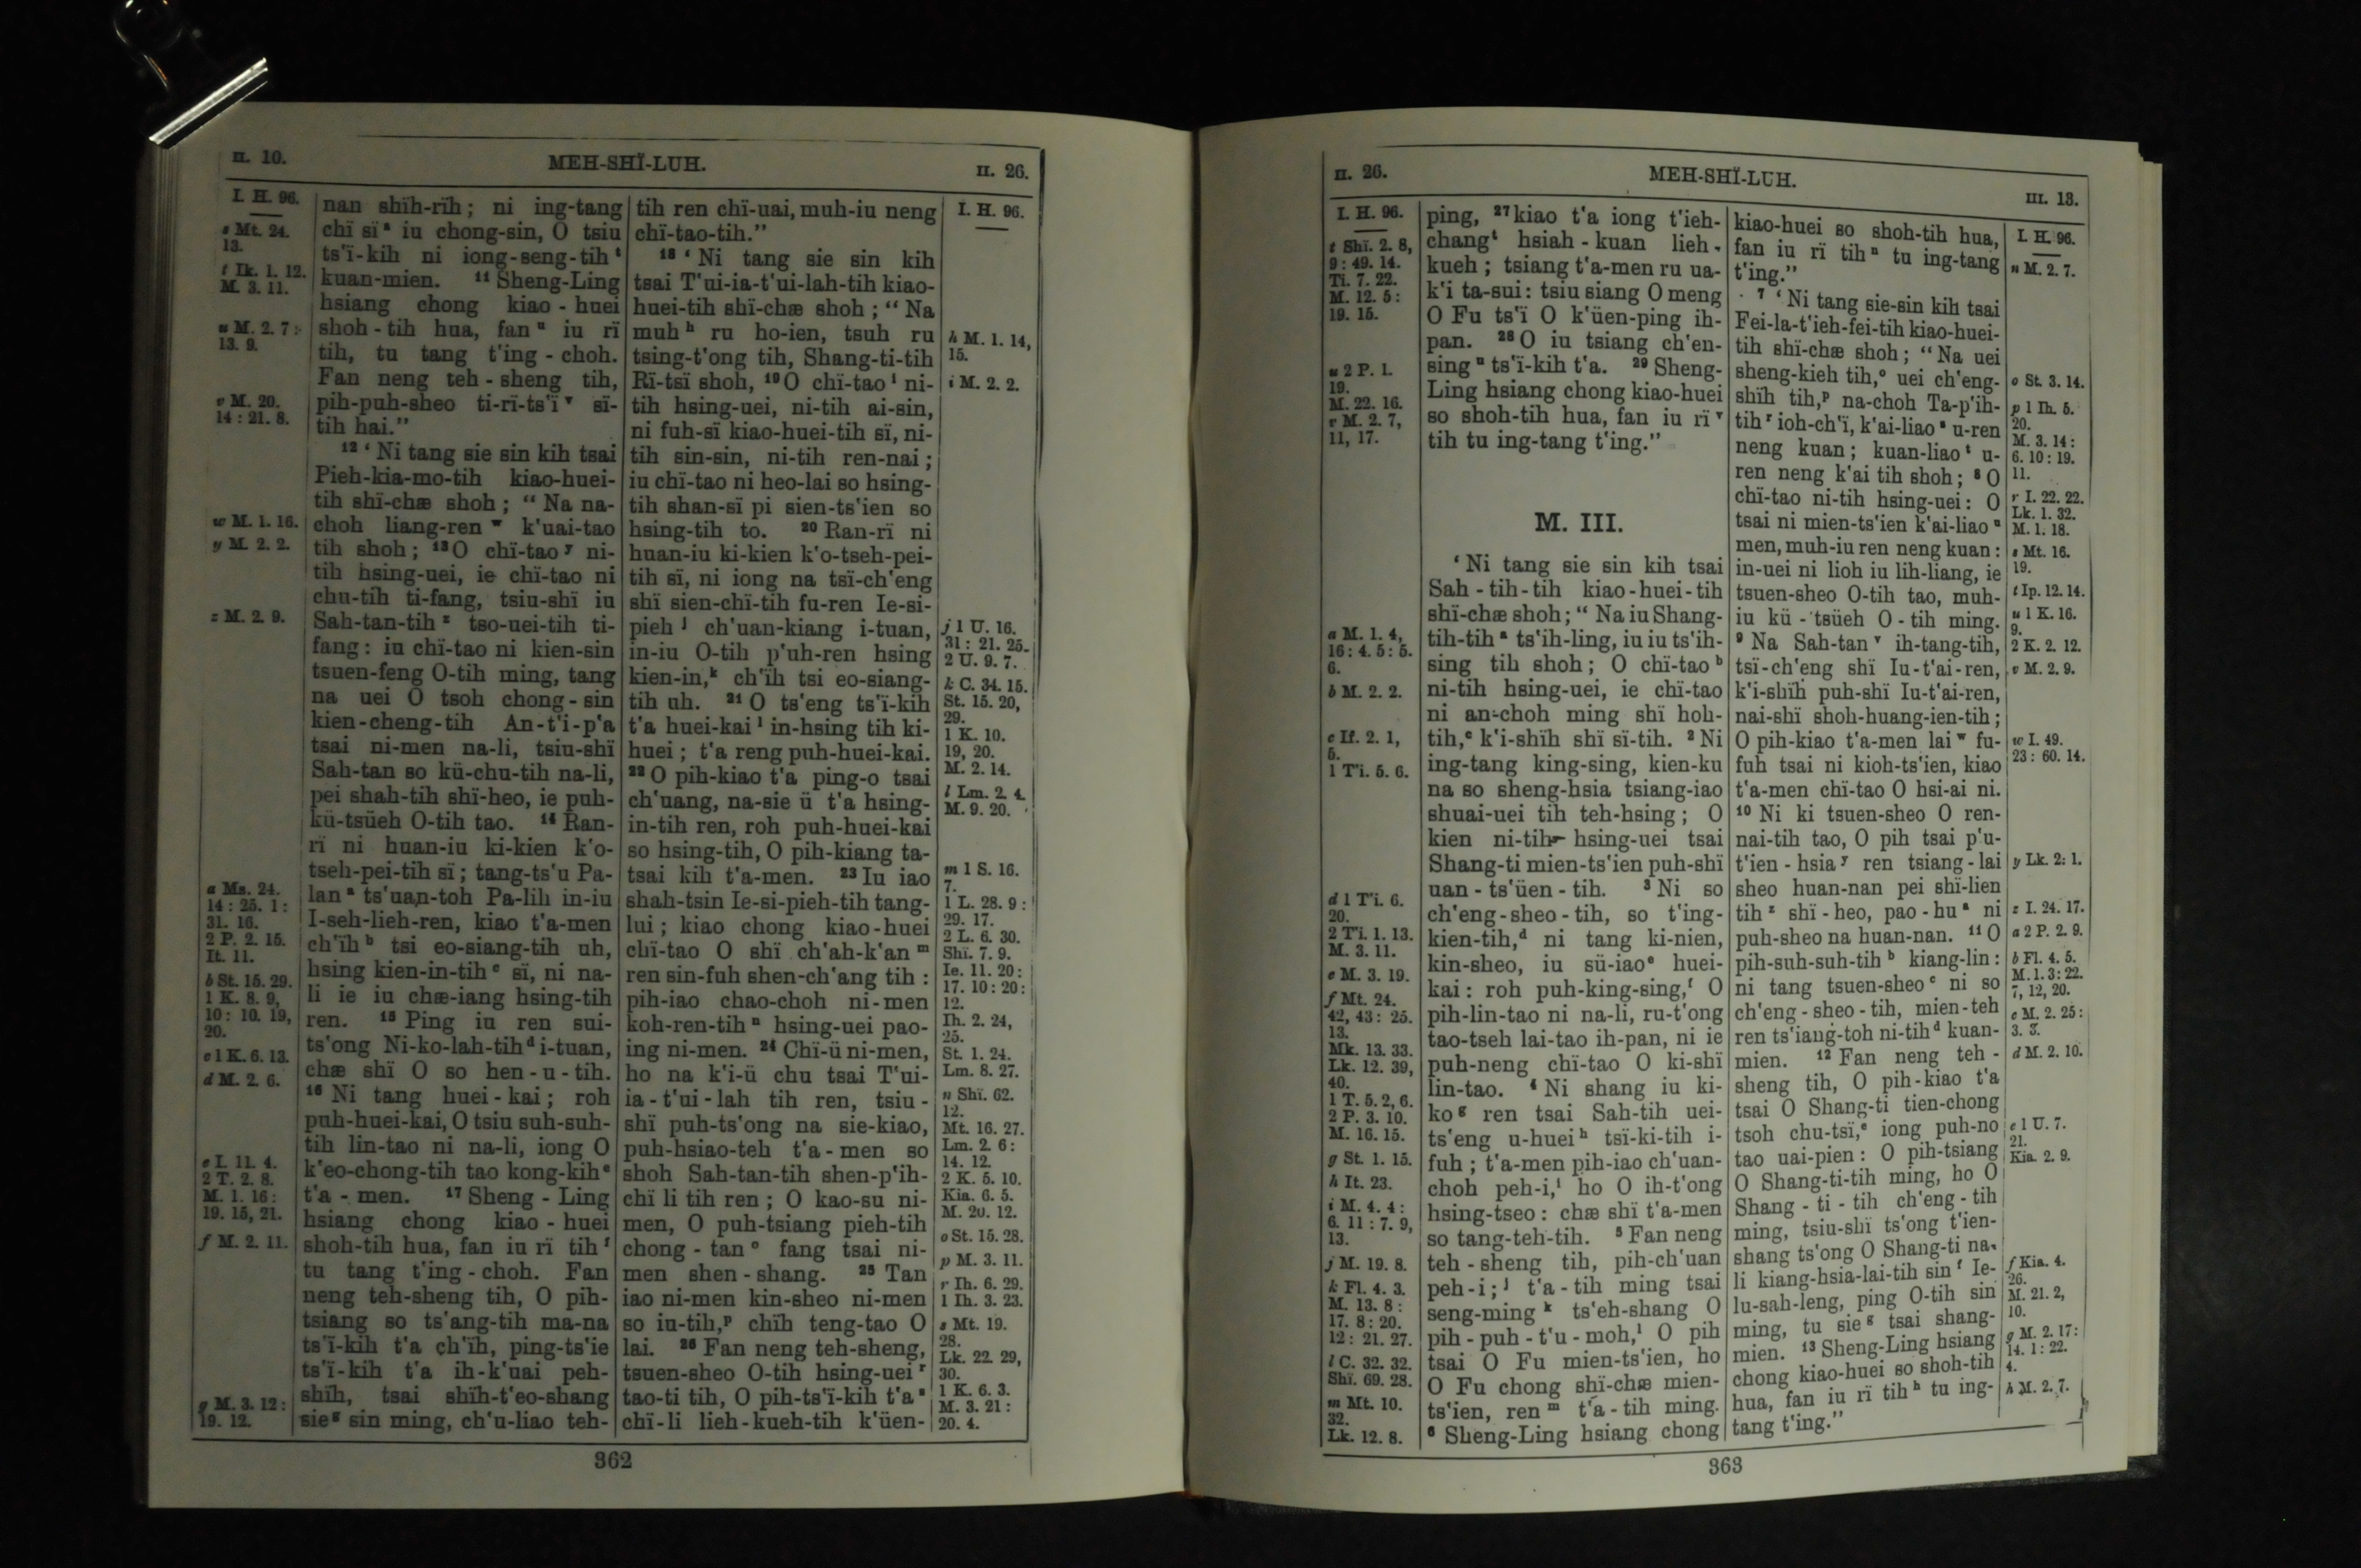 II. 10.
MEH-SHÏ-LUH.
II. 26.
I. H. 96.
s Mt. 24.
13.
t Ik. 1. 12.
M. 3. 11.
u M. 2. 7:
13. 9.
v M. 20.
14 : 21. 8.
w M. 1. 16.
y M. 2. 2.
z M. 2. 9.
a Ms. 24.
14 : 25. 1 :
31. 16.
2 P. 2. 15.
It. 11.
b St. 15. 29.
1 K. 8. 9,
10 : 10. 19,
20.
c 1 K. 6. 13.
d M. 2. 6.
e I. 11. 4.
2 T. 2. 8.
M. 1. 16 :
19. 15, 21.
f M. 2. 11.
g M. 3. 12 :
19. 12.
nan shïh-rïh ; ni ing-tang
chï sï s iu chong-sin, O tsiu
ts'ï-kih ni iong-seng-tih t
kuan-mien. 11 Sheng-Ling
hsiang chong kiao-huei
shoh-tih hua, fan u iu rï
tih, tu tang t'ing-choh.
Fan neng teh-sheng tih,
pih-puh-sheo ti-rï-ts'ï v sï-
tih hai."
12 ‘ Ni tang sie sin kih tsai
Pieh-kia-mo-tih kiao-huei-
tih shï-chæ shoh ; “ Na na-
choh liang-ren w k'uai-tao
tih shoh ; 13 O chï-tao y ni-
tih hsing-uei, ie chï-tao ni
chu-tih ti-fang, tsiu-shï iu
Sah-tan-tih z tso-uei-tih ti-
fang : iu chï-tao ni kien-sin
tsuen-feng O-tih ming, tang
na uei O tsoh chong-sin
kien-cheng-tih An-t'i-p'a
tsai ni-men na-li, tsiu-shï
Sah-tan so kü-chu-tih na-li,
pei shah-tih shï-heo, ie puh-
kü-tsüeh O-tih tao. 14 Ran-
rï ni huan-iu ki-kien k'o-
tseh-pei-tih sï ; tang-ts'u Pa-
lan a ts'uan-toh Pa-lih in-iu
I-seh-lieh-ren, kiao t'a-men
ch'ïh b tsi eo-siang-tih uh,
hsing kien-in-tih c sï, ni na-
li ie iu chæ-iang hsing-tih
ren. 15 Ping iu ren sui-
ts'ong Ni-ko-lah-tih d i-tuan,
chæ shï O so hen-u-tih.
16 Ni tang huei-kai ; roh
puh-huei-kai, O tsiu suh-suh-
tih lin-tao ni na-li, iong O
k'eo-chong-tih tao kong-kih e
t'a-men. 17 Sheng-Ling
hsiang chong kiao-huei
shoh-tih hua, fan iu rï tih f
tu tang t'ing-choh. Fan
neng teh-sheng tih, O pih-
tsiang so ts'ang-tih ma-na
ts'ï-kih t'a ch'ïh, ping-ts'ie
ts'ï-kih t'a ih-k'uai peh-
shïh, tsai shïh-t'eo-shang
sie g sin ming, ch'u-liao teh-
tih ren chï-uai, muh-iu neng
chï-tao-tih.”
18 ‘ Ni tang sie sin kih
tsai T'ui-ia-t'ui-lah-tih kiao-
huei-tih shï-chæ shoh ; “ Na
muh h ru ho-ien, tsuh ru
tsing-t'ong tih, Shang-ti-tih
Rï-tsï shoh, 19 O chï-tao i ni-
tih hsing-uei, ni-tih ai-sin,
ni fuh-sï kiao-huei-tih sï, ni-
tih sin-sin, ni-tih ren-nai ;
iu chï-tao ni heo-lai so hsing-
tih shan-sï pi sien-ts'ien so
hsing-tih to. 20 Ran-rï ni
huan-iu ki-kien k'o-tseh-pei-
tih sï, ni iong na tsï-ch'eng
shï sien-chï-tih fu-ren Ie-si-
pieh j ch'uan-kiang i-tuan,
in-iu O-tih p'uh-ren hsing
kien-in, k ch'ïh tsi eo-siang-
tih uh. 21 O ts'eng ts'ï-kih
t'a huei-kai l in-hsing tih ki-
huei ; t'a reng puh-huei-kai.
22 O pih-kiao t'a ping-o tsai
ch'uang, na-sie ü t'a hsing-
in-tih ren, roh puh-huei-kai
so hsing-tih, O pih-kiang ta-
tsai kih t'a-men. 23 Iu iao
shah-tsin Ie-si-pieh-tih tang-
lui ; kiao chong kiao-huei
chï-tao O shï ch'ah-k'an m
ren sin-fuh shen-ch'ang tih :
pih-iao chao-choh ni-men
koh-ren-tih n hsing-uei pao-
ing ni-men. 24 Chï-ü ni-men,
ho na k'i-ü chu tsai T'ui-
ia-t'ui-lah tih ren, tsiu-
shï puh-ts'ong na sie-kiao,
puh-hsiao-teh t'a-men so
shoh Sah-tan-tih shen-p'ih-
chï li tih ren ; O kao-su ni-
men, O puh-tsiang pieh-tih
chong-tan o fang tsai ni-
men shen-shang. 25 Tan
iao ni-men kin-sheo ni-men
so iu-tih, p chïh teng-tao O
lai. 26 Fan neng teh-sheng,
tsuen-sheo O-tih hsing-uei r
tao-ti tih, O pih-ts'ï-kih t'a s
chï-li lieh-kueh-tih k'üen-
I. H. 96.
h M. 1. 14,
15.
i M. 2. 2.
j 1 U. 16.
31 : 21. 25.
2 U. 9. 7.
k C. 34. 15.
St. 15. 20,
29.
1 K. 10.
19, 20.
M. 2. 14.
l Lm. 2. 4.
M. 9. 20.
m 1 S. 16.
7.
1 L. 28. 9 :
29. 17.
2 L. 6. 30.
Shï. 7. 9.
Ie. 11. 20 :
17. 10 : 20 :
12.
Ih. 2. 24,
25.
St. 1. 24.
Lm. 8. 27.
n Shï. 62.
12.
Mt. 16. 27.
Lm. 2. 6 :
14. 12.
2 K. 5. 10.
Kia. 6. 5.
M. 20. 12.
o St. 15. 28.
p M. 3. 11.
r Ih. 6. 29.
1 Ih. 3. 23.
s Mt. 19.
28.
Lk. 22. 29,
30.
1 K. 6. 3.
M. 3. 21 :
20. 4.
362
II. 26.
MEH-SHÏ-LUH.
III. 13.
I. H. 96.
t Shï. 2. 8,
9 : 49. 14.
Ti. 7. 22.
M. 12. 5 :
19. 15.
u 2 P. 1.
19.
M. 22. 16.
v M. 2. 7,
11, 17.
a M. 1. 4,
16 : 4. 5 : 5.
6.
b M. 2. 2.
c If. 2. 1,
5.
1 T'i. 5. 6.
d 1 T'i. 6.
20.
2 T'i. 1. 13.
M. 3. 11.
e M. 3. 19.
f Mt. 24.
42, 43 : 25.
13.
Mk. 13. 33.
Lk. 12. 39,
40.
1 T. 5. 2, 6.
2 P. 3. 10.
M. 16. 15.
g St. 1. 15.
h It. 23.
i M. 4. 4 :
6. 11 : 7. 9,
13.
j M. 19. 8.
k Fl. 4. 3.
M. 13. 8 :
17. 8 : 20.
12 : 21. 27.
l C. 32. 32.
Shï. 69. 28.
m Mt. 10.
32.
Lk. 12. 8.
ping, 27 kiao t'a iong t'ieh-
chang t hsiah-kuan lieh-
kueh ; tsiang t'a-men ru ua-
k'i ta-sui : tsiu siang O meng
O Fu ts'ï O k'üen-ping ih-
pan. 28 O iu tsiang ch'en-
sing u ts'ï-kih t'a. 29 Sheng-
Ling hsiang chong kiao-huei
so shoh-tih hua, fan iu rï v
tih tu ing-tang t'ing.”
M. III.
‘ Ni tang sie sin kih tsai
Sah-tih-tih kiao-huei-tih
shï-chæ shoh ; “ Na iu Shang-
tih-tih a ts'ih-ling, iu iu ts'ih-
sing tih shoh ; O chï-tao b
ni-tih hsing-uei, ie chï-tao
ni an-choh ming shï hoh-
tih, c k'i-shïh shï sï-tih. 2 Ni
ing-tang king-sing, kien-ku
na so sheng-hsia tsiang-iao
shuai-uei tih teh-hsing ; O
kien ni-tih hsing-uei tsai
Shang-ti mien-ts'ien puh-shï
uan-ts'üen-tih. 3 Ni so
ch'eng-sheo-tih, so t'ing-
kien-tih, d ni tang ki-nien,
kin-sheo, iu sü-iao e huei-
kai : roh puh-king-sing, f O
pih-lin-tao ni na-li, ru-t'ong
tao-tseh lai-tao ih-pan, ni ie
puh-neng chï-tao O ki-shï
lin-tao. 4 Ni shang iu ki-
ko g ren tsai Sah-tih uei-
ts'eng u-huei h tsï-ki-tih i-
fuh ; t'a-men pih-iao ch'uan-
choh peh-i, i ho O ih-t'ong
hsing-tseo : chæ shï t'a-men
so tang-teh-tih. 5 Fan neng
teh-sheng tih, pih-ch'uan
peh-i ; j t'a-tih ming tsai
seng-ming k ts'eh-shang O
pih-puh-t'u-moh, l O pih
tsai O Fu mien-ts'ien, ho
O Fu chong shï-chæ mien-
ts'ien, ren m t'a-tih ming.
6 Sheng-Ling hsiang chong
kiao-huei so shoh-tih hua,
fan iu rï tih n tu ing-tang
t'ing.”
7 ‘ Ni tang sie-sin kih tsai
Fei-la-t'ieh-fei-tih kiao-huei-
tih shï-chæ shoh ; “ Na uei
sheng-kieh tih, o uei ch'eng-
shïh tih, p na-choh Ta-p'ih-
tih r ioh-ch'ï, k'ai-liao s u-ren
neng kuan ; kuan-liao t u-
ren neng k'ai tih shoh ; 8 O
chï-tao ni-tih hsing-uei : O
tsai ni mien-ts'ien k'ai-liao u
men, muh-iu ren neng kuan :
in-uei ni lioh iu lih-liang, ie
tsuen-sheo O-tih tao, muh-
iu kü-tsüeh O-tih ming.
9 Na Sah-tan v ih-tang-tih,
tsï-ch'eng shï Iu-t'ai-ren,
k'i-shïh puh-shï Iu-t'ai-ren,
nai-shï shoh-huang-ien-tih ;
O pih-kiao t'a-men lai w fu-
fuh tsai ni kioh-ts'ien, kiao
t'a-men chï-tao O hsi-ai ni.
10 Ni ki tsuen-sheo O ren-
nai-tih tao, O pih tsai p'u-
t'ien-hsia y ren tsiang-lai
sheo huan-nan pei shï-lien
tih z shï-heo, pao-hu a ni
puh-sheo na huan-nan. 11 O
pih-suh-suh-tih b kiang-lin :
ni tang tsuen-sheo c ni so
ch'eng-sheo-tih, mien-teh
ren ts'iang-toh ni-tih d kuan-
mien. 12 Fan neng teh-
sheng tih, O pih-kiao t'a
tsai O Shang-ti tien-chong
tsoh chu-tsï, e iong puh-no
tao uai-pien : O pih-tsiang
O Shang-ti-tih ming, ho O
Shang-ti-tih ch'eng-tih
ming, tsiu-shï ts'ong t'ien-
shang ts'ong O Shang-ti na-
li kiang-hsia-lai-tih sin f Ie-
lu-sah-leng, ping O-tih sin
ming, tu sie g tsai shang-
mien. 13 Sheng-Ling hsiang
chong kiao-huei so shoh-tih
hua, fan iu rï tih h tu ing-
tang t'ing.”
I. H. 96.
n M. 2. 7.
o St. 3. 14.
p 1 Ih. 5.
20.
M. 3. 14 :
6. 10 : 19.
11.
r I. 22. 22.
Lk. 1. 32.
M. 1. 18.
s Mt. 16.
19.
t Ip. 12. 14.
u 1 K. 16.
9.
2 K. 2. 12.
v M. 2. 9.
w I. 49.
23 : 60. 14.
y Lk. 2 : 1.
z I. 24. 17.
a 2 P. 2. 9.
b Fl. 4. 5.
M. 1. 3 : 22.
7, 12, 20.
c M. 2. 25 :
3. 3.
d M. 2. 10.
e 1 U. 7.
21.
Kia. 2. 9.
f Kia. 4.
26.
M. 21. 2,
10.
g M. 2. 17 :
14. 1 : 22.
4.
h M. 2. 7.
363